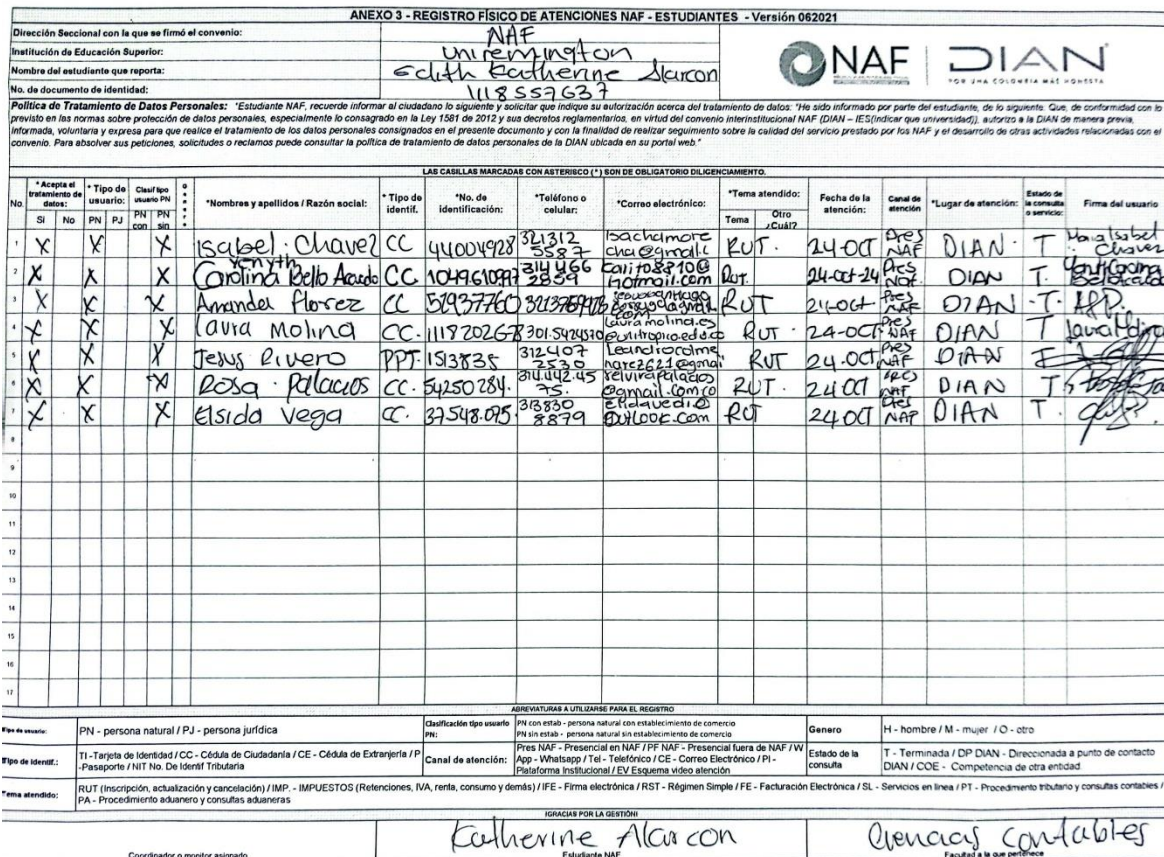 ANEXO 3 - REGISTRO FÍSICO DE ATENCIONES NAF - ESTUDIANTES - Versión 062021
Dirección Seccional con la que se firmó el convenio: NAF
Institución de Educación Superior: Uniremington
Nombre del estudiante que reporta: Edith Katherine Alarcon
No. de documento de identidad: 1118557637
NAF DIAN
POR UNA COLOMBIA MÁS HONESTA
Política de Tratamiento de Datos Personales: "Estudiante NAF, recuerde informar al ciudadano lo siguiente y solicitar que indique su autorización acerca del tratamiento de datos: "He sido informado por parte del estudiante, de lo siguiente: Que, de conformidad con lo
previsto en las normas sobre protección de datos personales, especialmente lo consagrado en la Ley 1581 de 2012 y sus decretos reglamentarios, en virtud del convenio interinstitucional NAF (DIAN – IES(indicar que universidad)), autorizo a la DIAN de manera previa,
informada, voluntaria y expresa para que realice el tratamiento de los datos personales consignados en el presente documento y con la finalidad de realizar seguimiento sobre la calidad del servicio prestado por los NAF y el desarrollo de otras actividades relacionadas con el
convenio. Para absolver sus peticiones, solicitudes o reclamos puede consultar la política de tratamiento de datos personales de la DIAN ubicada en su portal web."
LAS CASILLAS MARCADAS CON ASTERISCO (*) SON DE OBLIGATORIO DILIGENCIAMIENTO.
No. *Acepta el tratamiento de datos: Si No *Tipo de usuario: PN PJ Clasif tipo usuario PN PN con PN sin *Nombres y apellidos / Razón social: *Tipo de identif. *No. de identificación: *Teléfono o celular: *Correo electrónico: *Tema atendido: Tema Otro ¿Cuál? Fecha de la atención: Canal de atención *Lugar de atención: Estado de la consulta o servicio: Firma del usuario
1 X X X Isabel Chavez CC 44004928 321312 5587 isachamore cha@gmail.c RUT. 24 OCT Pres NAF DIAN. T Maria Isabel Chavez
2 X X X Yenyth Carolina Bello Acevedo CC 1049610997 314466 2859 karito8810@ hotmail.com Rut. 24-oct-24 Pres NAF. DIAN T.
3 X X X Amanda florez CC 52937760 RUT 24-oct Pres NAF DIAN T.
4 X X X Laura Molina CC. 1118202678 301.5424570 lauramolina.es @unitropico.edu.co RUT. 24-OCT Pres NAF DIAN T Laura Molina
5 X X X Jesus Rivero PPT 1513835 312407 2530 RUT 24.oct Pres NAF DIAN
6 X X X Rosa Palacios CC. 54250284. 314.442.45 75. relvirapalacios @gmail.com.co RUT. 24 OCT Pres NAF DIAN T
7 X X X Elsida Vega CC. 37548.095 313830 8879 elidavedi.@ outlook.com RUT 24 OCT Pres NAF DIAN T.
8
9
10
11
12
13
14
15
16
17
ABREVIATURAS A UTILIZARSE PARA EL REGISTRO
Tipo de usuario: PN - persona natural / PJ - persona jurídica Clasificación tipo usuario PN: PN con estab - persona natural con establecimiento de comercio PN sin estab - persona natural sin establecimiento de comercio Genero H - hombre / M - mujer / O - otro
Tipo de identif.: TI -Tarjeta de Identidad / CC - Cédula de Ciudadanía / CE - Cédula de Extranjería / P -Pasaporte / NIT No. De Identif Tributaria Canal de atención: Pres NAF - Presencial en NAF / PF NAF - Presencial fuera de NAF / W App - Whatsapp / Tel - Telefónico / CE - Correo Electrónico / PI - Plataforma Institucional / EV Esquema video atención Estado de la consulta T - Terminada / DP DIAN - Direccionada a punto de contacto DIAN / COE - Competencia de otra entidad.
Tema atendido: RUT (Inscripción, actualización y cancelación) / IMP. - IMPUESTOS (Retenciones, IVA, renta, consumo y demás) / IFE - Firma electrónica / RST - Régimen Simple / FE - Facturación Electrónica / SL - Servicios en línea / PT - Procedimiento tributario y consultas contables /
PA - Procedimiento aduanero y consultas aduaneras
¡GRACIAS POR LA GESTIÓN!
Katherine Alarcon Ciencias contables
Coordinador o monitor asignado Estudiante NAF Facultad a la que pertenece